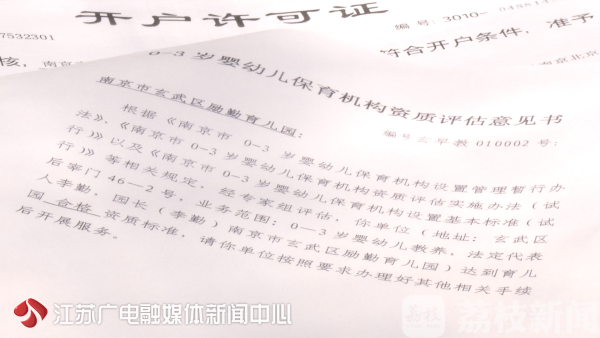 开户许可证
编号:3010-
7532301
核,南京
符合开户条件,准予
南京北京
0-3岁婴幼儿保育机构资质评估意见书
编号玄早教010002号:
南京市玄武区励勤育儿园:
根据《南京市0-3岁婴幼儿保育机构设置管理暂行办
法》、《南京市0-3岁婴幼儿保育机构资质评估实施办法(试
行)》以及《南京市0-3岁婴幼儿保育机构设置基本标准(试
行)》等相关规定,经专家组评估,你单位(地址:玄武区
后宰门46-2号,业务范围:0-3岁婴幼儿教养,法定代表
人李勤,园长(李勤)南京市玄武区励勤育儿园)达到育儿
园合格资质标准,请你单位按照要求办理好其他相关手续
后开展服务。
江苏广电融媒体新闻中心
荔枝 荔枝新闻